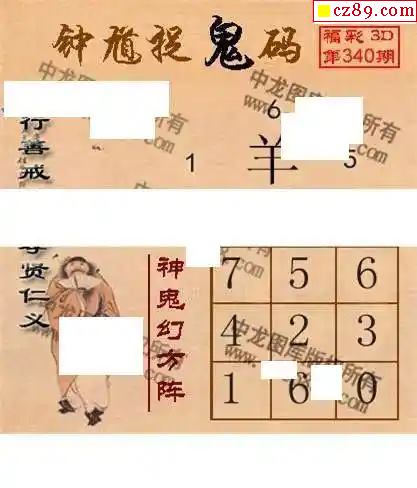 cz89.com
钟馗捉鬼码
福彩 3D
第340期
行善戒
6
1
羊
5
尊贤仁义
神鬼幻方阵
7 5 6
4 2 3
1 6 0
中龙图库版权所有